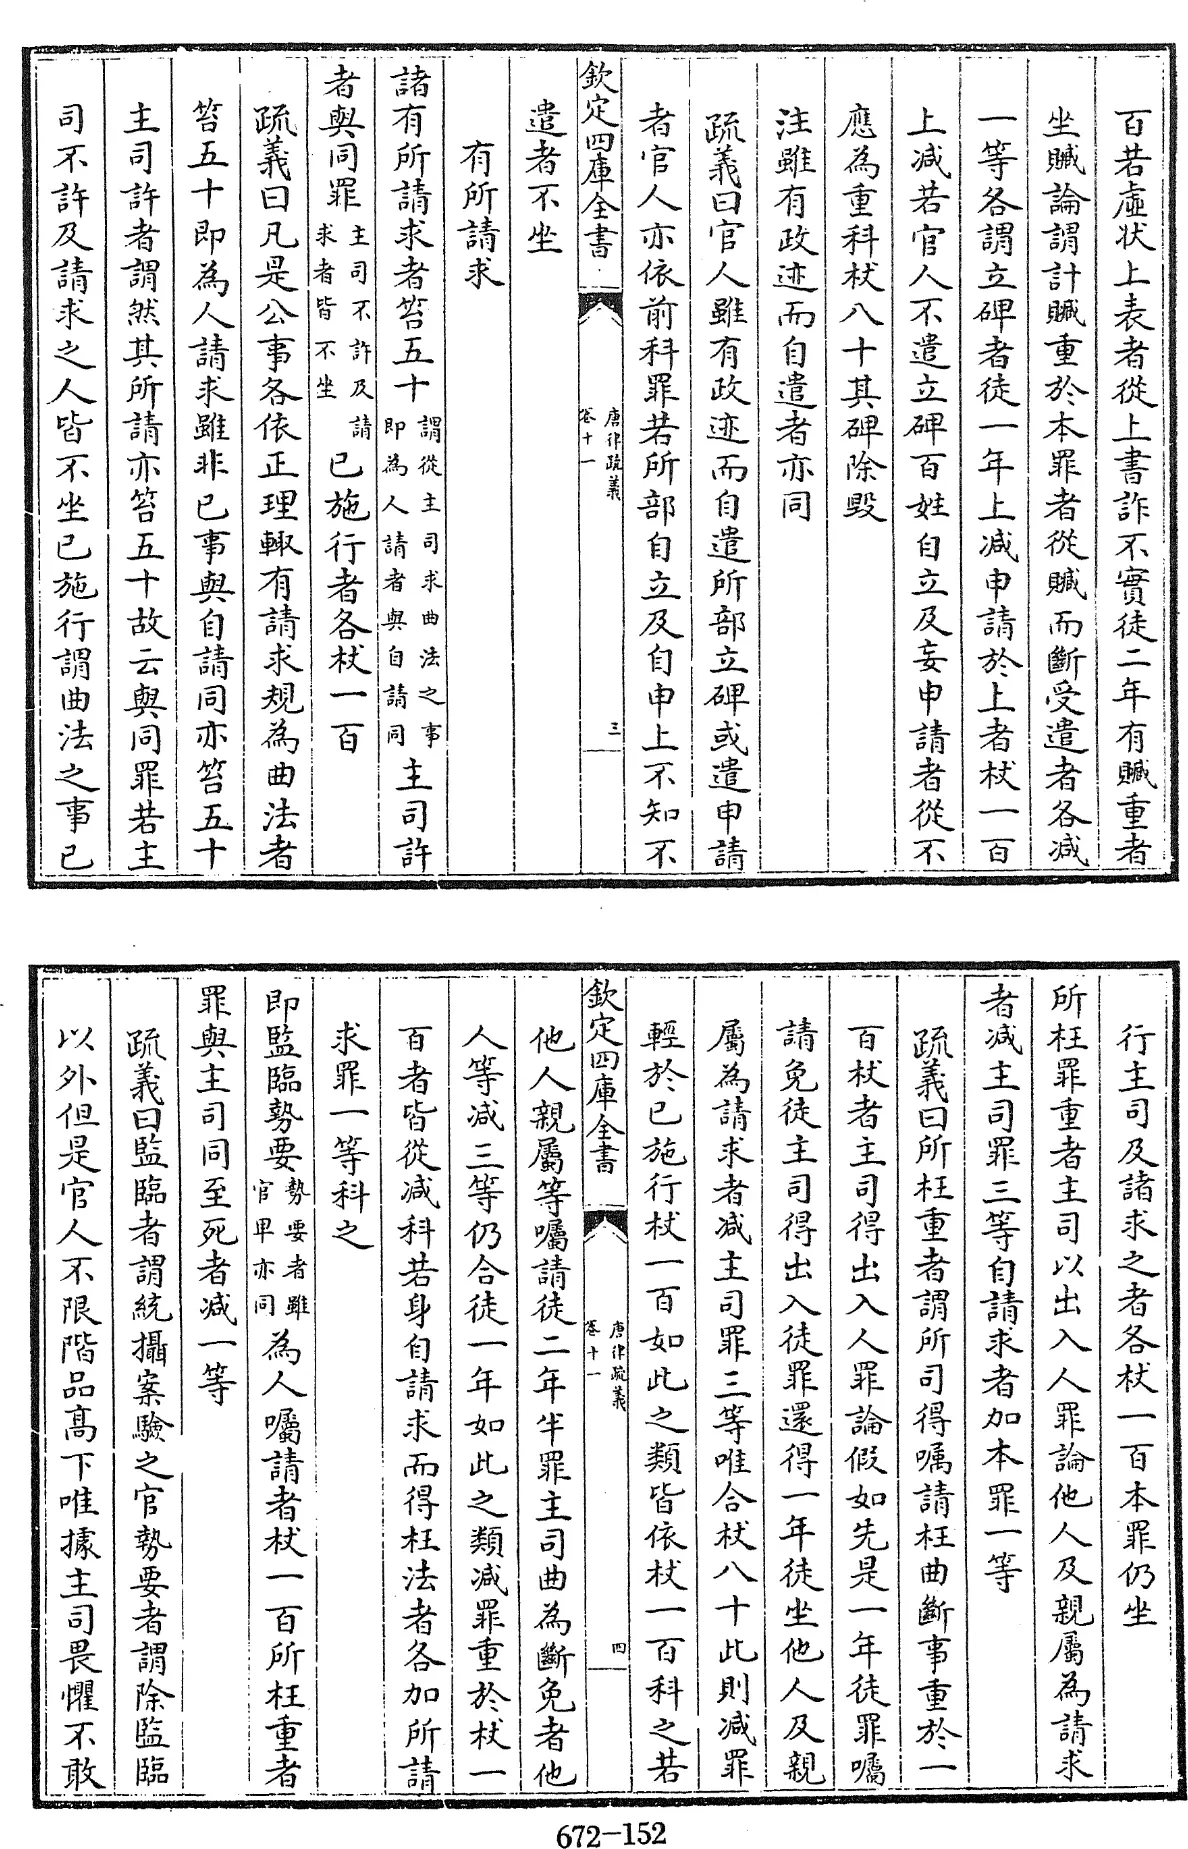 百若虛状上表者從上書詐不實徒二年有贓重者
坐贓論謂計贓重於本罪者從贓而斷受遣者各減
一等各謂立碑者徒一年上减申請於上者杖一百
上减若官人不遣立碑百姓自立及妄申請者從不
應為重科杖八十其碑除毀
注雖有政迹而自遣者亦同
疏義曰官人雖有政迹而自遣所部立碑或遣申請
者官人亦依前科罪若所部自立及自申上不知不
欽定四庫全書
唐律疏義
卷十一
三
遣者不坐
有所請求
諸有所請求者笞五十謂從主司求曲法之事即為人請者與自請同主司許
者與同罪主司不許及請求者皆不坐已施行者各杖一百
疏義曰凡是公事各依正理輙有請求規為曲法者
笞五十即為人請求雖非已事與自請同亦笞五十
主司許者謂然其所請亦笞五十故云與同罪若主
司不許及請求之人皆不坐已施行謂曲法之事已
行主司及諸求之者各杖一百本罪仍坐
所枉罪重者主司以出入人罪論他人及親屬為請求
者減主司罪三等自請求者加本罪一等
疏義曰所枉重者謂所司得囑請枉曲斷事重於一
百杖者主司得出入人罪論假如先是一年徒罪囑
請免徒主司得出入徒罪還得一年徒坐他人及親
屬為請求者减主司罪三等唯合杖八十此則减罪
輕於已施行杖一百如此之類皆依杖一百科之若
欽定四庫全書
唐律疏義
卷十一
四
他人親屬等囑請徒二年半罪主司曲為斷免者他
人等減三等仍合徒一年如此之類減罪重於杖一
百者皆從减科若身自請求而得枉法者各加所請
求罪一等科之
即監臨勢要勢要者雖官卑亦同為人囑請者杖一百所枉重者
罪與主司同至死者减一等
疏義曰監臨者謂統攝案驗之官勢要者謂除監臨
以外但是官人不限階品髙下唯據主司畏懼不敢
672-152